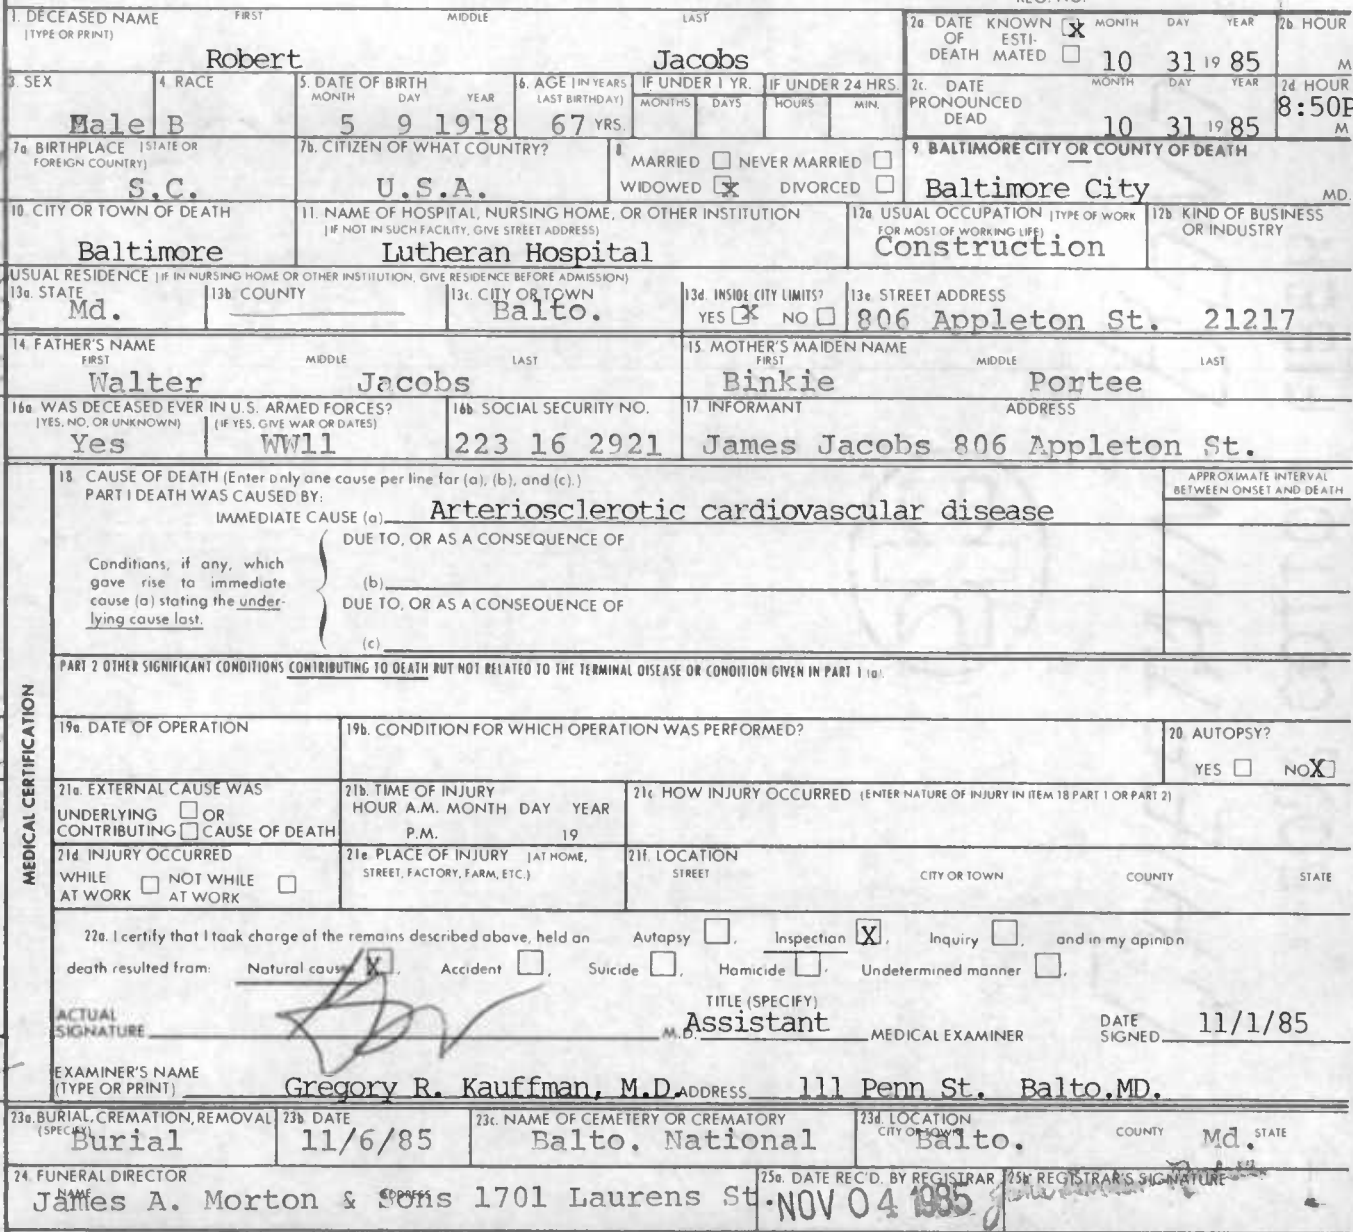 1. DECEASED NAME FIRST MIDDLE LAST
(TYPE OR PRINT)
Robert Jacobs
2a DATE KNOWN X MONTH DAY YEAR
OF ESTI-
DEATH MATED 10 31 19 85
2b. HOUR
M
3. SEX
Male
4. RACE
B
5. DATE OF BIRTH
MONTH DAY YEAR
5 9 1918
6. AGE (IN YEARS
LAST BIRTHDAY)
67 YRS.
IF UNDER 1 YR.
MONTHS DAYS
IF UNDER 24 HRS.
HOURS MIN.
2c. DATE MONTH DAY YEAR
PRONOUNCED
DEAD 10 31 19 85
2d HOUR
8:50P
M
7a BIRTHPLACE (STATE OR
FOREIGN COUNTRY)
S.C.
7b. CITIZEN OF WHAT COUNTRY?
U.S.A.
8
MARRIED NEVER MARRIED
WIDOWED X DIVORCED
9 BALTIMORE CITY OR COUNTY OF DEATH
Baltimore City MD.
10 CITY OR TOWN OF DEATH
Baltimore
11. NAME OF HOSPITAL, NURSING HOME, OR OTHER INSTITUTION
(IF NOT IN SUCH FACILITY, GIVE STREET ADDRESS)
Lutheran Hospital
12a USUAL OCCUPATION (TYPE OF WORK
FOR MOST OF WORKING LIFE)
Construction
12b KIND OF BUSINESS
OR INDUSTRY
USUAL RESIDENCE (IF IN NURSING HOME OR OTHER INSTITUTION, GIVE RESIDENCE BEFORE ADMISSION)
13a. STATE
Md.
13b. COUNTY
13c. CITY OR TOWN
Balto.
13d. INSIDE CITY LIMITS?
YES X NO
13e STREET ADDRESS
806 Appleton St. 21217
14. FATHER'S NAME
FIRST MIDDLE LAST
Walter Jacobs
15. MOTHER'S MAIDEN NAME
FIRST MIDDLE LAST
Binkie Portee
16a WAS DECEASED EVER IN U.S. ARMED FORCES?
(YES, NO, OR UNKNOWN) (IF YES, GIVE WAR OR DATES)
Yes WW11
16b SOCIAL SECURITY NO.
223 16 2921
17 INFORMANT ADDRESS
James Jacobs 806 Appleton St.
MEDICAL CERTIFICATION
18 CAUSE OF DEATH (Enter only one cause per line for (a), (b), and (c).)
PART I DEATH WAS CAUSED BY:
IMMEDIATE CAUSE (a) Arteriosclerotic cardiovascular disease
APPROXIMATE INTERVAL
BETWEEN ONSET AND DEATH
Conditions, if any, which
gave rise to immediate
cause (a) stating the under-
lying cause last.
DUE TO, OR AS A CONSEQUENCE OF
(b)
DUE TO, OR AS A CONSEQUENCE OF
(c)
PART 2 OTHER SIGNIFICANT CONDITIONS CONTRIBUTING TO DEATH BUT NOT RELATED TO THE TERMINAL DISEASE OR CONDITION GIVEN IN PART 1 (a).
19a. DATE OF OPERATION
19b. CONDITION FOR WHICH OPERATION WAS PERFORMED?
20 AUTOPSY?
YES NO X
21a. EXTERNAL CAUSE WAS
UNDERLYING OR
CONTRIBUTING CAUSE OF DEATH
21b. TIME OF INJURY
HOUR A.M. MONTH DAY YEAR
P.M. 19
21c HOW INJURY OCCURRED (ENTER NATURE OF INJURY IN ITEM 18 PART 1 OR PART 2)
21d INJURY OCCURRED
WHILE NOT WHILE
AT WORK AT WORK
21e PLACE OF INJURY (AT HOME,
STREET, FACTORY, FARM, ETC.)
21f. LOCATION
STREET CITY OR TOWN COUNTY STATE
22a. I certify that I took charge of the remains described above, held an Autopsy , Inspection X , Inquiry , and in my opinion
death resulted from: Natural cause X , Accident , Suicide , Homicide , Undetermined manner .
ACTUAL
SIGNATURE M.D.
TITLE (SPECIFY)
Assistant MEDICAL EXAMINER
DATE
SIGNED 11/1/85
EXAMINER'S NAME
(TYPE OR PRINT) Gregory R. Kauffman, M.D. ADDRESS 111 Penn St. Balto.MD.
23a. BURIAL, CREMATION, REMOVAL
(SPECIFY)
Burial
23b DATE
11/6/85
23c. NAME OF CEMETERY OR CREMATORY
Balto. National
23d. LOCATION
CITY OR TOWN COUNTY STATE
Balto. Md.
24. FUNERAL DIRECTOR
NAME ADDRESS
James A. Morton & Sons 1701 Laurens St.
25a. DATE REC'D. BY REGISTRAR
NOV 04 1985
25b REGISTRAR'S SIGNATURE